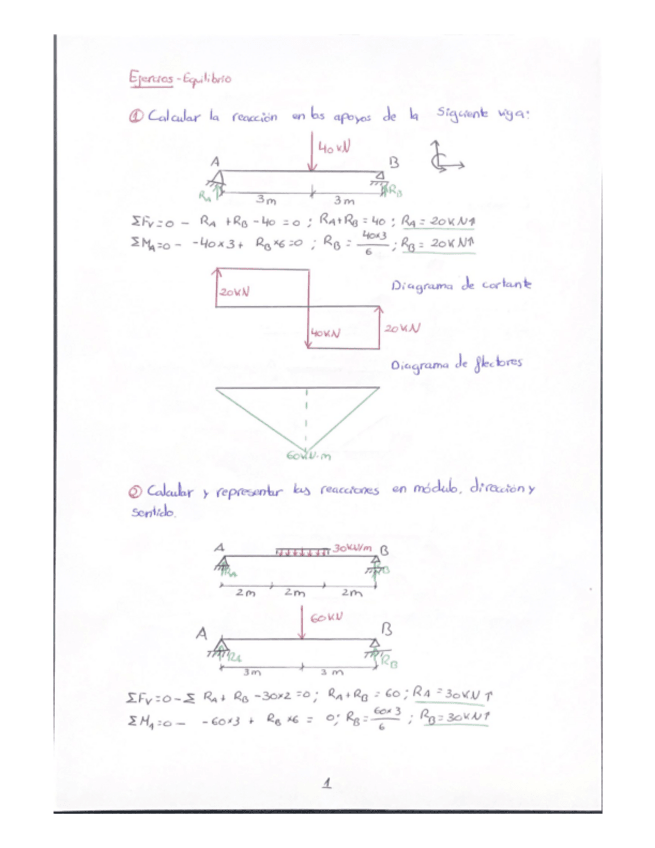 Ejercicios - Equilibrio
① Calcular la reacción en los apoyos de la siguiente viga:
40 kN
A B
RA RB
3m 3m
ΣFv=0 - RA + RB - 40 = 0 ; RA+RB = 40 ; RA = 20 KN↑
ΣMA=0 - -40x3 + RB x6 = 0 ; RB = 40x3/6 ; RB = 20 KN↑
Diagrama de cortante
20 KN
40 KN 20 KN
Diagrama de flectores
60 kN·m
② Calcular y representar las reacciones en módulo, dirección y
sentido.
A 30 KN/m B
RA RB
2m 2m 2m
60 KN
A B
RA RB
3m 3m
ΣFv=0 - Σ RA + RB - 30x2 = 0 ; RA+RB = 60 ; RA = 30 KN ↑
ΣMA=0 - -60x3 + RB x6 = 0 ; RB = 60x3/6 ; RB = 30 KN↑
1